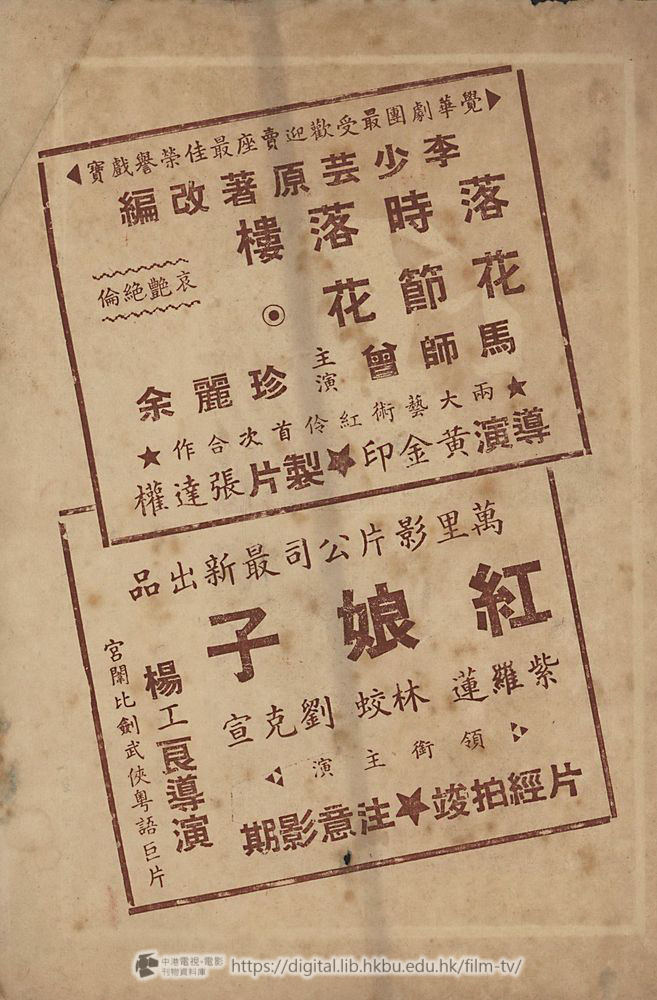 覺華劇團最受歡迎賣座最佳榮譽戲寶
李少芸原著改編
落花時節落花樓
哀艷絕倫
馬師曾
主演
余麗珍
兩大藝術紅伶首次合作
導演黃金印
製片張達權
萬里影片公司最新出品
紅娘子
紫羅蓮 林蛟 劉克宣
領銜主演
楊工良導演
宮闈比劍武俠粵語巨片
片經拍竣
注意影期
中港電視·電影
刊物資料庫
https://digital.lib.hkbu.edu.hk/film-tv/